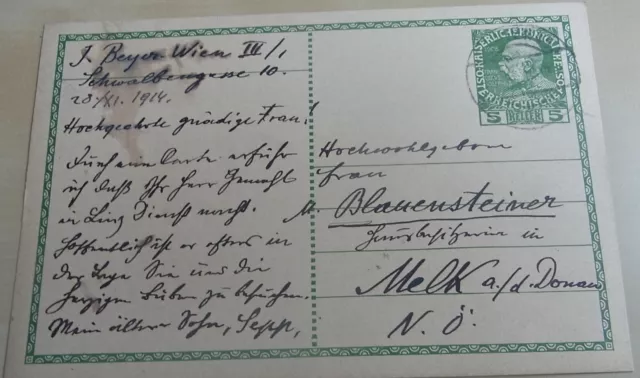 J. Beyer Wien III/1
Schwalbengasse 10.
28./XI. 1914.
Hochgeehrte gnädige Frau!
Durch eine Karte erfuhr
ich daß Ihr Herr Gemahl
in Linz Dienst macht.
Hoffentlich ist er öfters in
der Lage Sie und die
herzigen Buben zu besuchen.
Mein älterer Sohn, Sepp,
KAISERLICHE KÖNIGLICHE
ÖSTERREICHISCHE
5 HELLER 5
Hochwohlgeboren
Frau
M. Blauensteiner
Hausbesitzerin in
Melk a./d. Donau
N. Ö.